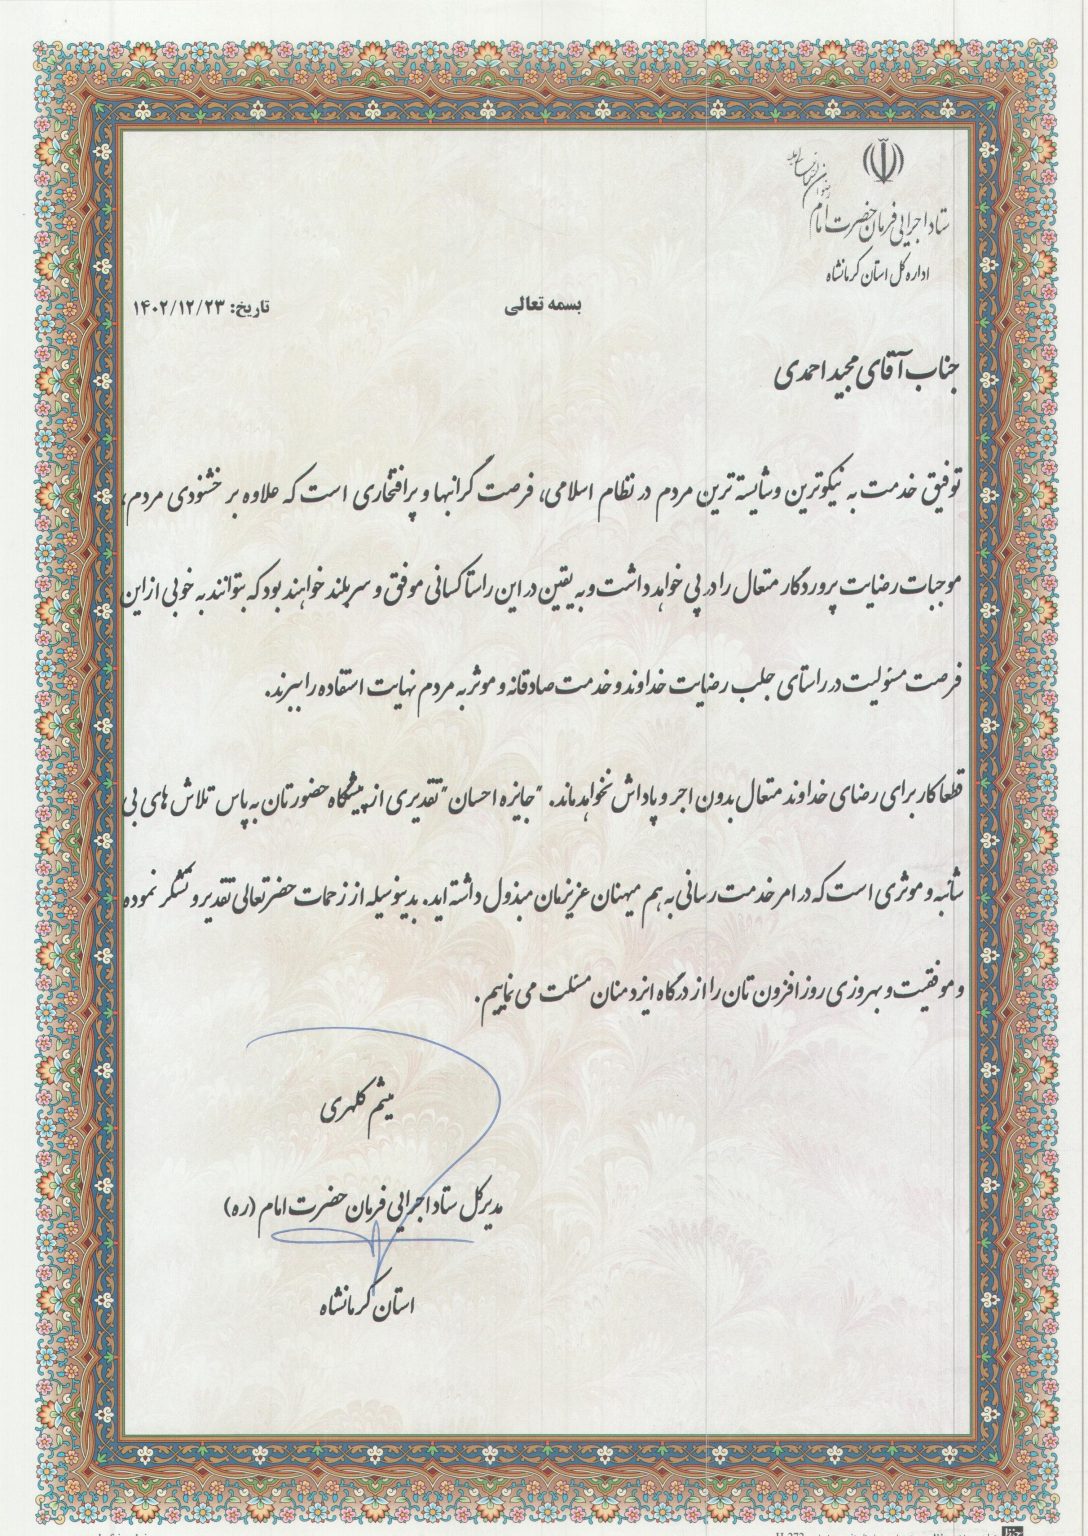 رضوان الله تعالی علیه
ستاد اجرایی فرمان حضرت امام
اداره کل استان کرمانشاه
بسمه تعالی
تاریخ: ۱۴۰۲/۱۲/۲۳
جناب آقای مجید احمدی
توفیق خدمت به نیکوترین و شایسته ترین مردم در نظام اسلامی، فرصت گرانبها و پرافتخاری است که علاوه بر خشنودی مردم،
موجبات رضایت پروردگار متعال را در پی خواهد داشت و به یقین در این راستا کسانی موفق و سربلند خواهند بود که بتوانند به خوبی از این
فرصت مسئولیت در راستای جلب رضایت خداوند و خدمت صادقانه و موثر به مردم نهایت استفاده را ببرند.
قطعا کار برای رضای خداوند متعال بدون اجر و پاداش نخواهد ماند. "جایزه احسان" تقدیری از پیشگاه حضورتان به پاس تلاش های بی
شائبه و موثری است که در امر خدمت رسانی به هم میهنان عزیزمان مبذول داشته اید. بدینوسیله از زحمات حضرتعالی تقدیر و تشکر نموده
و موفقیت و بهروزی روز افزون تان را از درگاه ایزد منان مسئلت می نماییم.
میثم کلهری
مدیرکل ستاد اجرایی فرمان حضرت امام (ره)
استان کرمانشاه